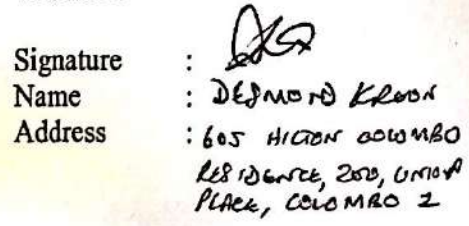 Signature :
Name : DESMOND KROON
Address : 605 HILTON COLOMBO
RESIDENCE, 200, UNION
PLACE, COLOMBO 2